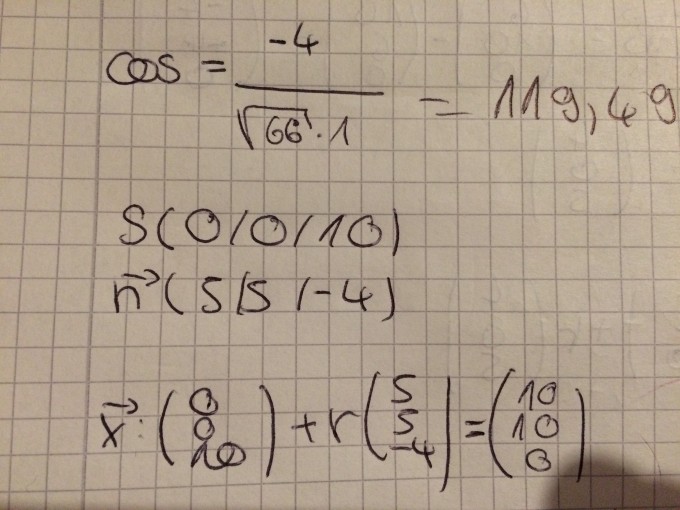 cos = -4 / √66 · 1 = 119,49
S(0/0/10)
n⃗ (5/5/-4)
x⃗: (0 0 10) + r (5 5 -4) = (10 10 0)